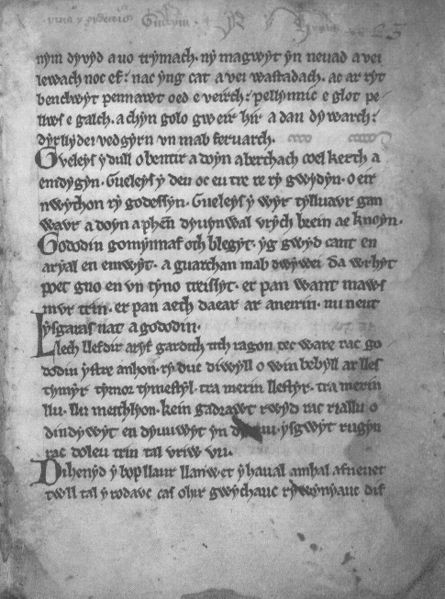 nym dyvyd a uo trymach. ny magwyt yn neuad a vei
lewach noc ef. nac yng cat a vei wastadach. ac ar ryt
benclwyt pennawt oed e veirch. pellynnic e glot pe
llws e galch. a chyn golo gweir hir a dan dywarch.
dyrllydei vedgyrn un mab feruarch.
Gveleys y dull o bentir a doyn aberthach coel kerth a
emdygyn. Gueleys y deu oc eu tre re ry gwydyn. o eir
nwython ry godessyn. Gueleys y wyr tylluavr gan
wavr a doyn a phen dyuynwal vrych brein ae knoyn.
Gododin gomynnaf oth blegyt. yg gwyd cant en
aryal en emwyt. a guarchan mab dwywei da wrhyt
poet gno en vn tyno treissyt. er pan want maws
mvr trin. er pan aeth daear ar aneirin. nu neut
ysgaras nat a gododin.
Llech llefdir aryf gardith tith ragon tec ware rac go
dodin ystre anhon. ry duc diwyll o win bebyll ar lles
tymyr tymor tymestyl. tra merin llestyr. tra merin
llu. llu meithlyon. kein gadrawt rwyd rac riallu o
dindywyt en dyuuwyt yn ysgwyt rugyn
rac doleu trin tal vriw vu.
Dihenyd y bop llaur llanwet y haual amhal afneuet
twll tal y rodavc cas ohir gwychauc rywynyauc dif